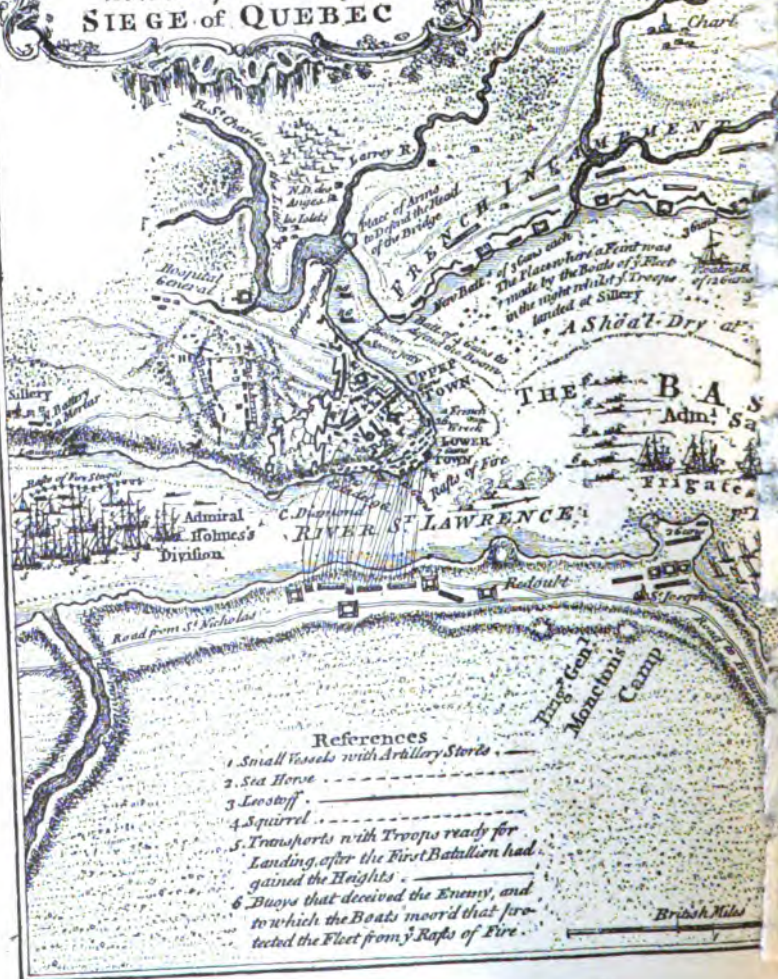 SIEGE of QUEBEC
Charl
R. St Charles or the
Larrey R.
N.D. des
Anges
les Islets
Place of Arms
to Defend the Head
of the Bridge
FRENCH INCAMPMENT
Hospital
General
New Batt. s of 3 Guns each
The Place where a Feint was
made by the Boats of ye Fleet
in the night whilst ye Troops
landed at Sillery
3 Guns
of 12 Guns
A Shoal-Dry at
UPPER
TOWN
a French
Wreck
LOWER
TOWN
Rafts of Fire
THE BAS
Adm.l Sa
Frigates
Sillery
Battery
Mortar
Rafts of Fire Stages
Admiral
Holmes's
Division
C. Diamond
RIVER ST. LAWRENCE
Redoubt
Road from St. Nicholas
Brigr. Genl.
Moncton's
Camp
References
1. Small Vessels with Artillery Stores.
2. Sea Horse
3. Leostoff.
4. Squirrel.
5. Transports with Troops ready for
Landing, after the First Batallion had
gained the Heights.
6. Buoys that deceived the Enemy, and
to which the Boats moor'd that pro-
tected the Fleet from ye. Rafts of Fire.
British Miles
1